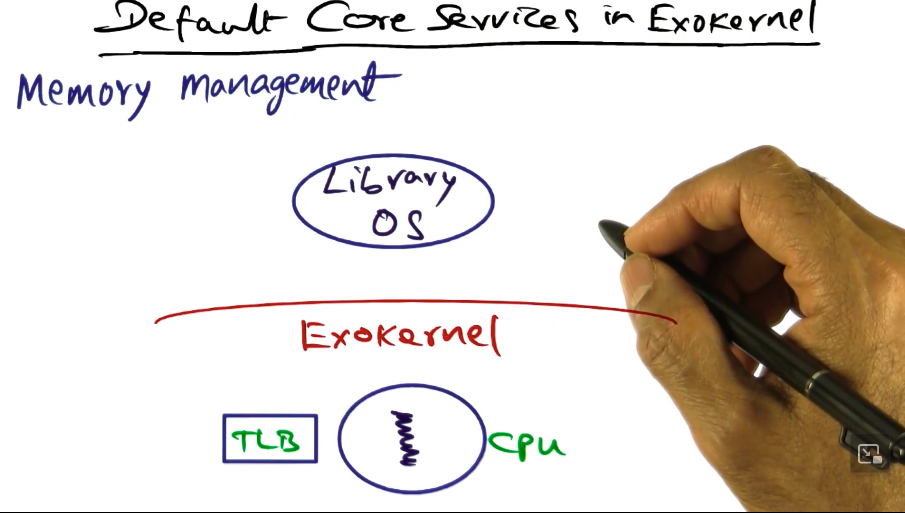 Default Core Services in Exokernel
Memory management
Library
OS
Exokernel
TLB
CPU